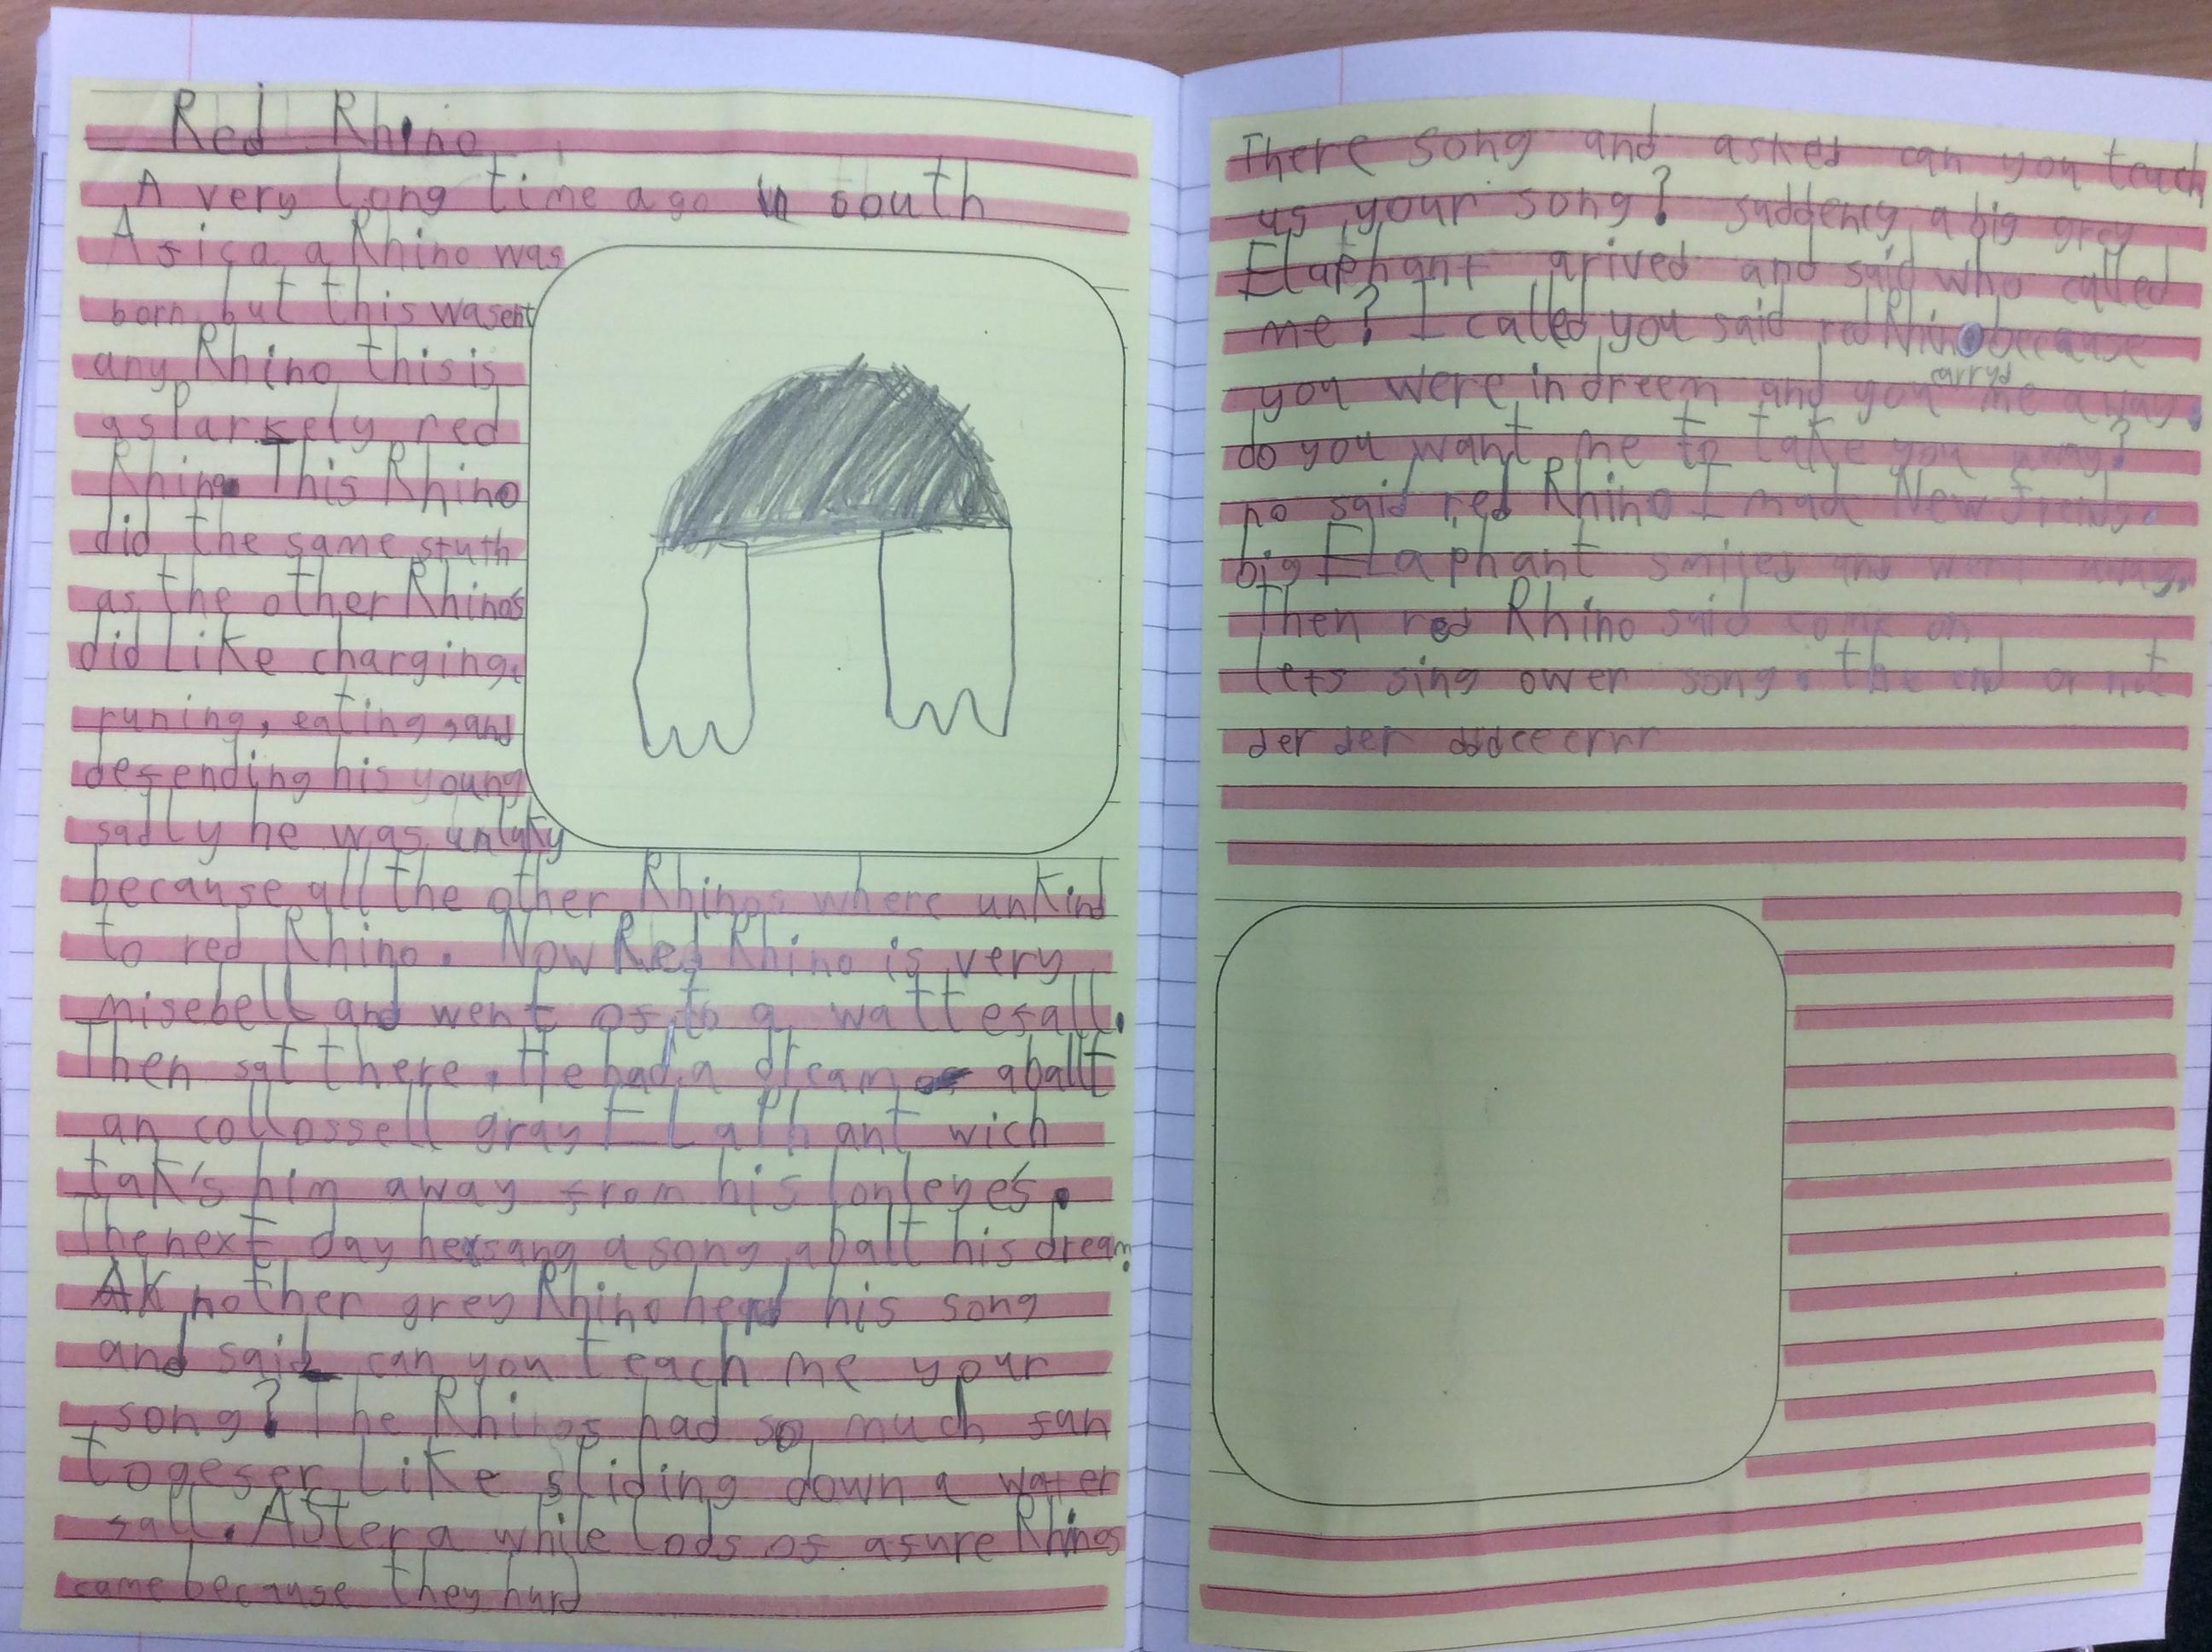 Red Rhino
A very long time ago in south
Afica a Rhino was
born but this wasent
any Rhino this is
asparkely red
Rhino. This Rhino
did the same stuth
as the other Rhinos
did like charging,
runing, eating, and
defending his young
sadly he was unluky
because all the other Rhinos where unkind
to red Rhino. Now Red Rhino is very
misebell and went of to a wattefall.
Then sat there. He had a dream aballt
an collossell gray Elaphant wich
tak's him away from his lonleye's.
The next day he sang a song abalt his dream.
AK nother grey Rhino herd his song
and said can you teach me your
song? The Rhinos had so much fun
togeser like sliding down a water
fall. After a while lods of afure Rhinos
came because they hurd
There song and asked can you teach
us your song? suddency a big grey
Elaphant arived and said who called
me? I called you said red Rhino because
you were in dreem and you carryd me away.
do you want me to take you away?
no said red Rhino I made New frends.
big Elaphant smiled and went away.
Then red Rhino said come on
lets sing ower song. the end or not
der der dddeeerrr